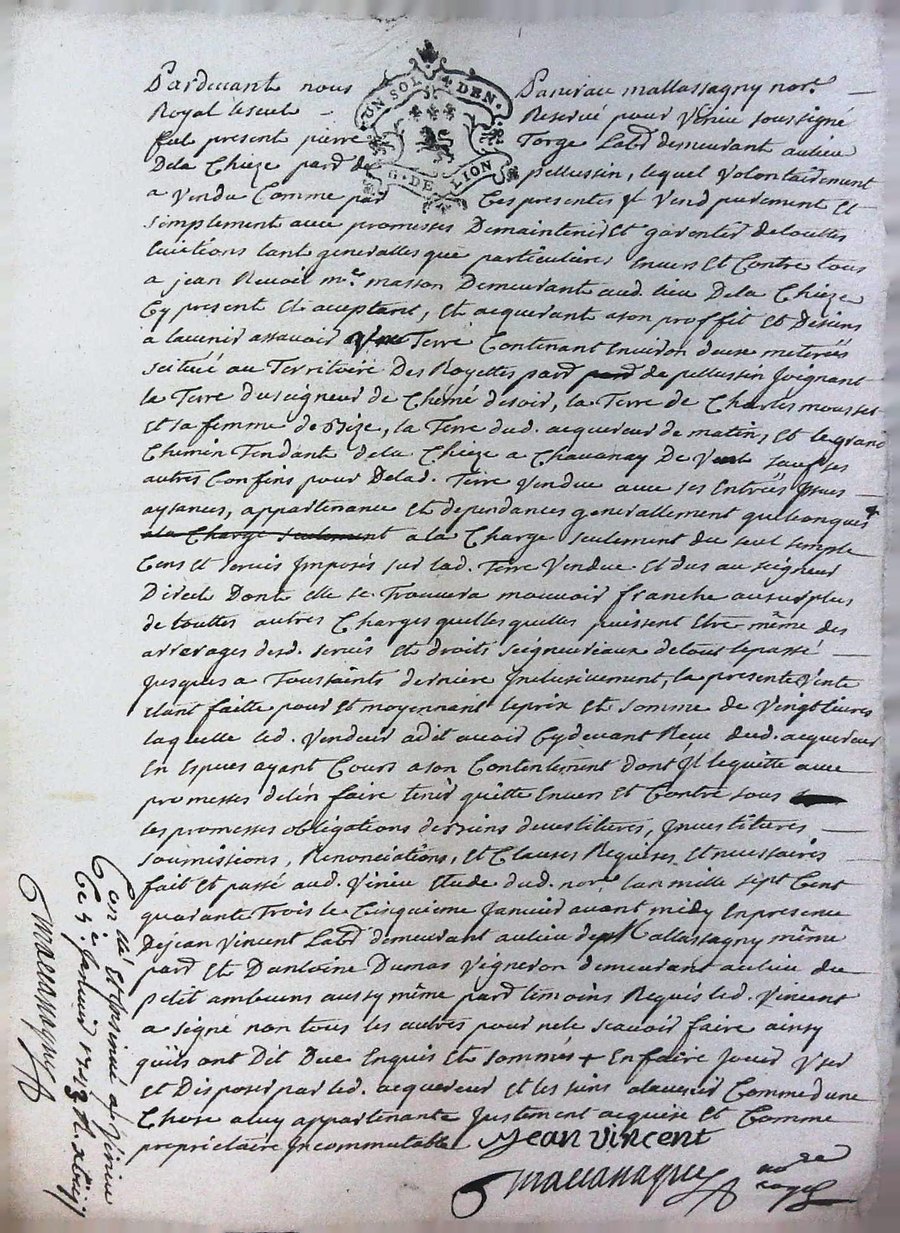 Pardevant nous Panirau mallassagny nore.
Royal Reservé pour Vérin soussigné
fut present pierre Torge Labr demeurant aulieu
Dela Chieze parr de pellussin, lequel volontairement
a vendu Comme par Ces presentes Il vend purement et
simplement avec promesses Demaintenir et garentir detouttes
Evictions tant generalles que particulieres Envers et Contre tous
a jean Revoil me. masson Demeurant aud. lieu Dela Chieze
Cy present et aceptant, et acquerant ason proffit et Des siens
a lavenir assavoir Une Terre Contenant Environ deux meterées
scituée au Territoire Des Royettes parr de pellussin Joignant
la Terre du seigneur de Chené de soir, la Terre de Charles mousset
et sa femme de Bize, la Terre dud. acquereur de matin, et le grand
Chemin Tendant dela Chieze a Chavanay De Vent sauf ses
autres Confins pour Delad. Terre vendue avec ses Entrées Issues
aysances, appartenance et dependances generallement quelconques
ala Charge seulement a la Charge seulement du seul simple
Cens et servis Imposés sur lad. Terre Vendue et dus au seigneur
Direct Dont elle se Trouvera mouvoir franche au surplus
de touttes autres Charges quelles quelles puissent Etre même des
arrerages desd. servis et droits seigneuriaux detout lepassé
Jusques a Toussaints derniere Inclusivement, la presente Vente
étant faitte pour et moyennant leprix et somme de Vingt livres
laquelle led. Vendeur a dit avoir Cydevant Reçu dud. acquereur
En Especes ayant Cours a son Contentement dont Il le quitte avec
promesses delen faire tenir quitte Envers et Contre tous
les promesses obligations des biens devestitures, Investitures
soumissions, Renonciations, et Clauses Requises et necessaires
fait et passé aud. Vérin Etude dud. nore. lan mille sept Cent
quarante Trois le Cinquieme Janvier avant midy En presence
De jean Vincent Labr demeurant aulieu de Mallassagny même
parr et Dantoine Dumas Vigneron demeurant aulieu du
petit ambuens aussy même parr temoins Requis led. Vincent
a signé non tous les autres pour ne le scavoir faire ainsy
quils ont Dit Due Enquis et sommés + En faire Jouir User
et Disposer par led. acquereur et les siens alavenir Comme dune
Chose a luy appartenante Justement acquise et Comme
propriétaire Incommutable
Jean Vincent
UN SOL 4 DEN.
G. DE LION
Con.lé Et Insinué a Vérin
Ce 5e Janvier 1743